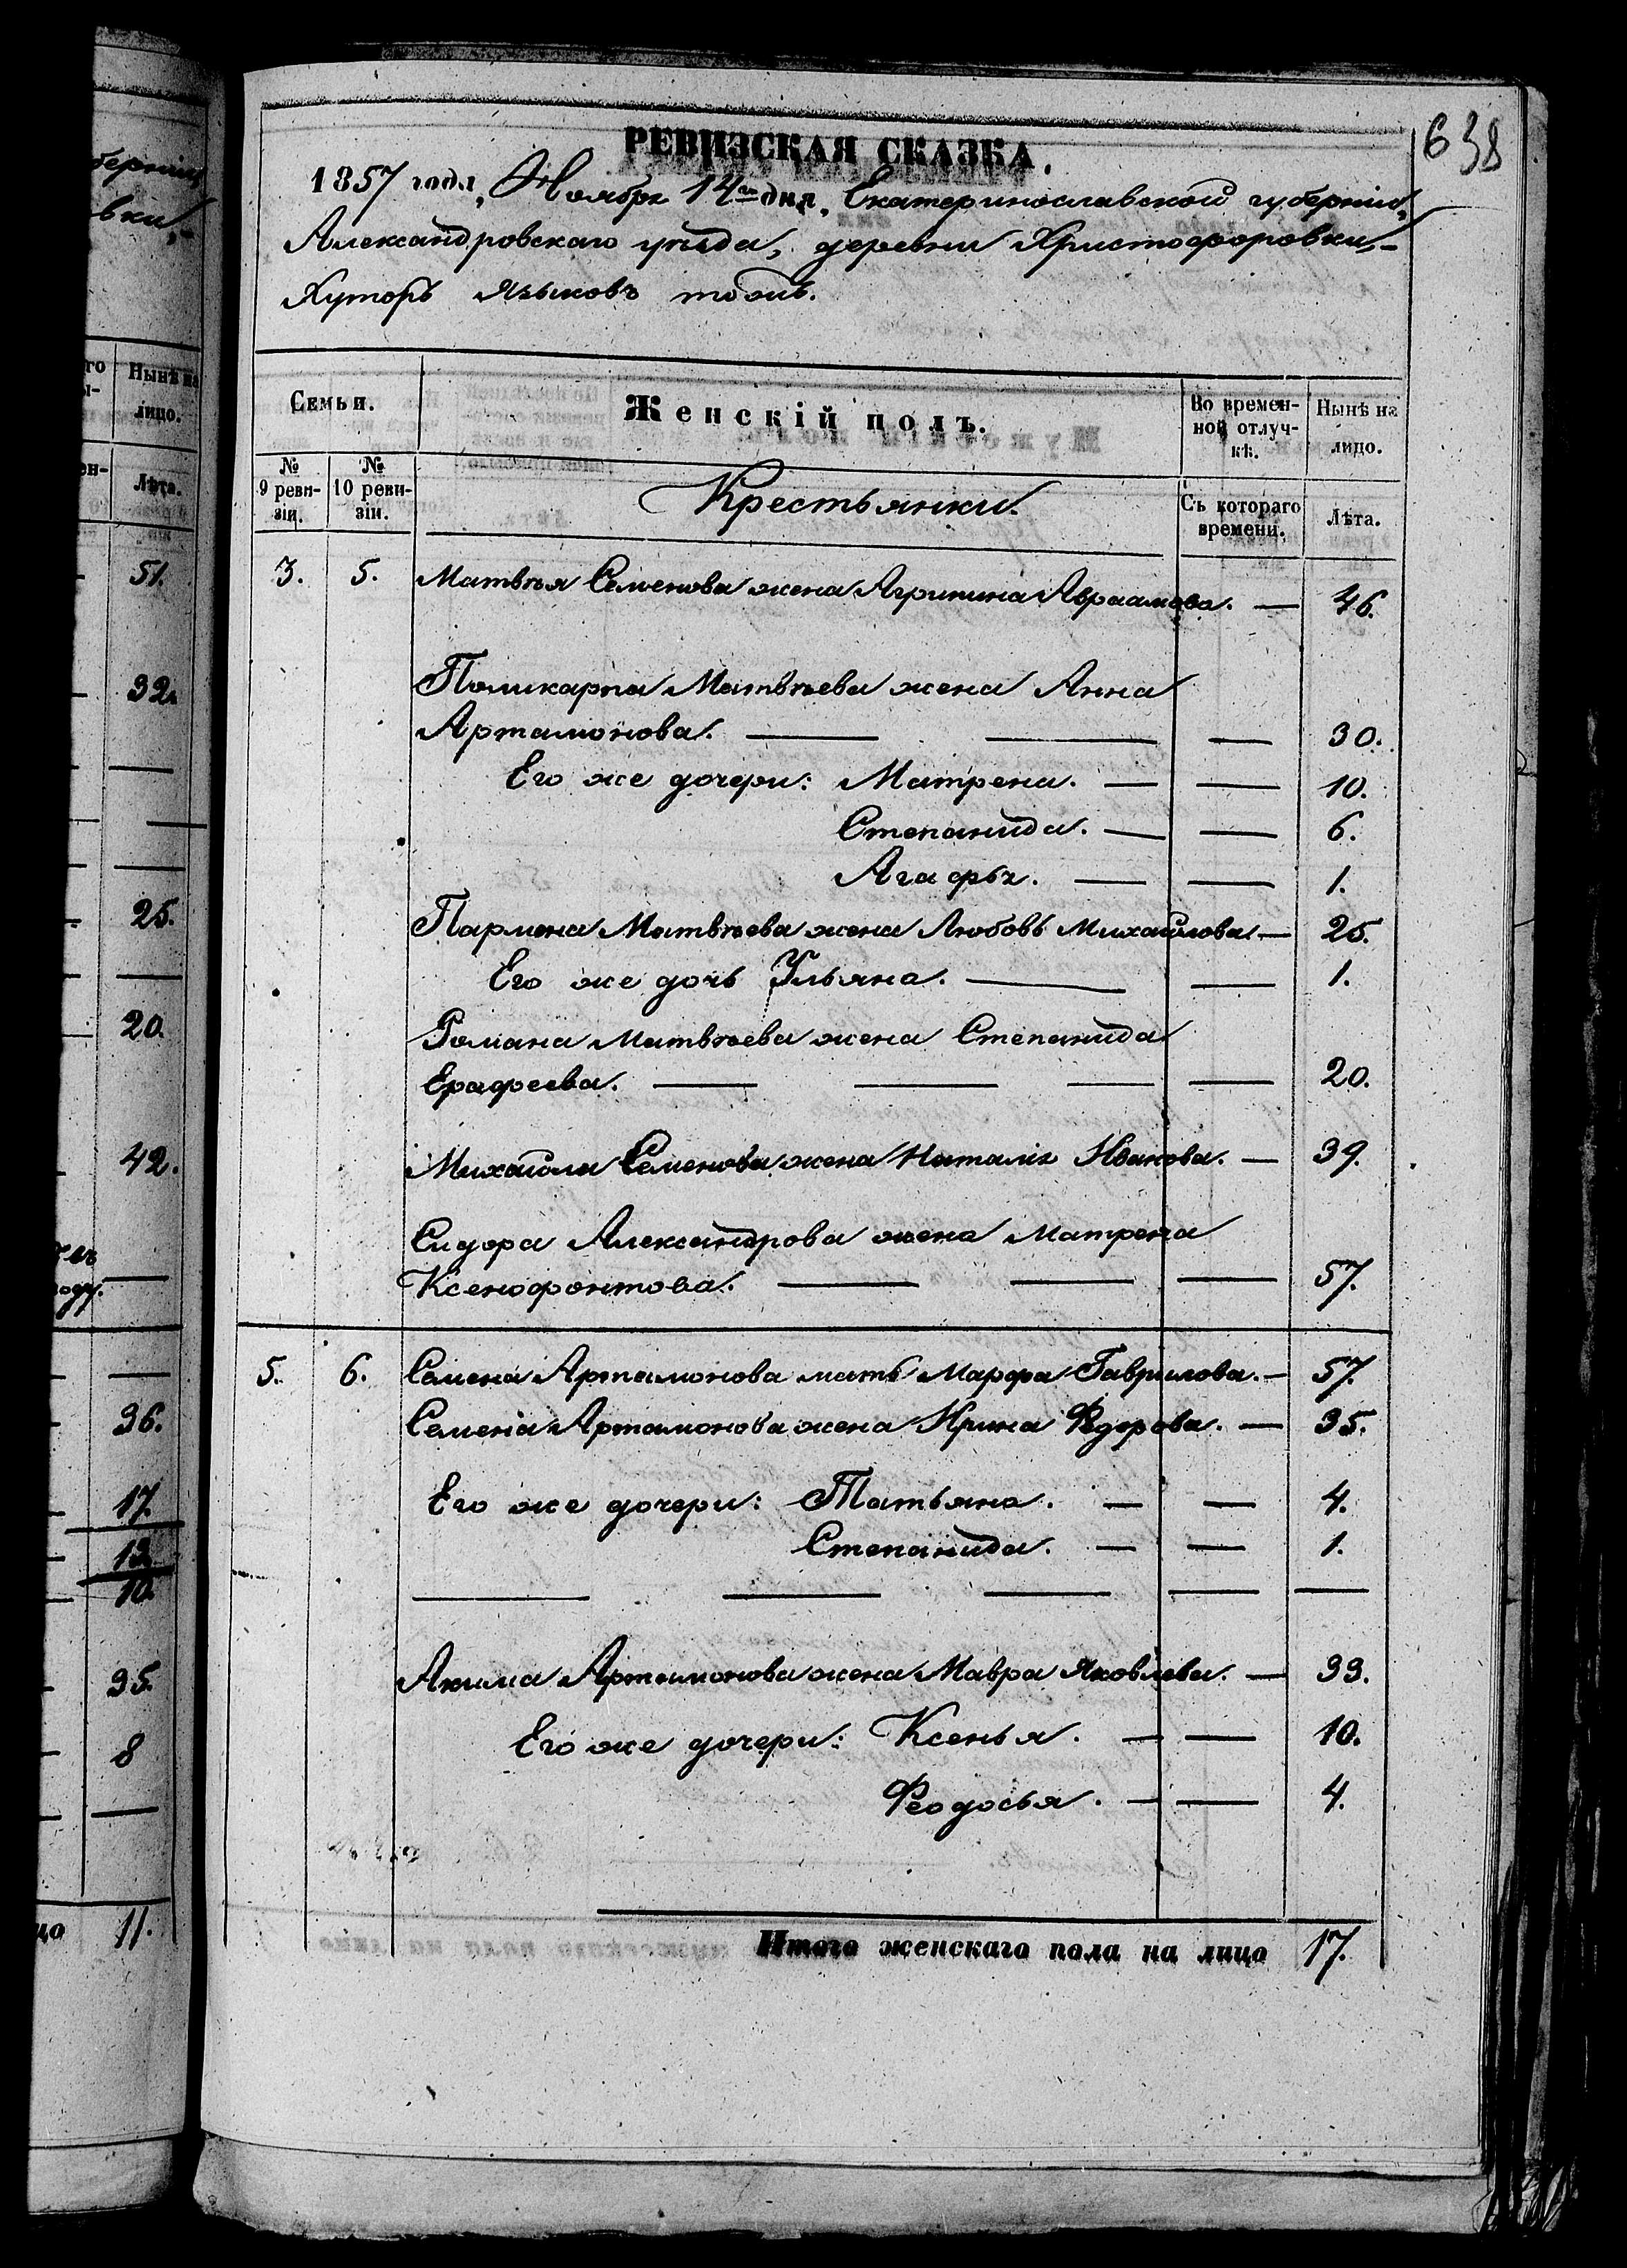 638
РЕВИЗСКАЯ СКАЗКА.
1857 года, Ноября 14го дня, Екатеринославской губернии,
Александровскаго уѣзда, деревни Христофоровки,-
Хуторъ Языковъ тожъ.
Семьи.
Женскій полъ.
Во времен-
ной отлуч-
кѣ.
Нынѣ на
лицо.
№
9 реви-
зіи.
№
10 реви-
зіи.
Крестьянки.
Съ котораго
времени.
Лѣта.
3. 5. Матвѣя Семенова жена Агрипина Авраамова. — 46.
Поликарпа Матвѣева жена Анна
Артамонова. — — — 30.
Его же дочери: Матрена. — — 10.
Степанида. — — 6.
Агафья. — — 1.
Пармена Матвѣева жена Любовь Михайлова. — 25.
Его же дочь Ульяна. — — 1.
Романа Матвѣева жена Степанида
Ерафеева. — — — — 20.
Михайлы Семенова жена Наталія Иванова. — 39.
Сидора Александрова жена Матрена
Ксенофонтова. — — — 57.
5. 6. Семена Артамонова мать Марфа Гаврилова. — 57.
Семена Артамонова жена Ирина Федорова. — 35.
Его же дочери: Татьяна. — — 4.
Степанида. — — 1.
Акима Артамонова жена Мавра Яковлева. — 33.
Его же дочери: Ксенья. — — 10.
Феодосья. — — 4.
Итого женскаго пола на лицо 17.
берніи,
вки,-
го
Нынѣ на
лицо.
Лѣта.
51.
32.
25.
20.
42.
оду.
36.
17.
13.
10.
35.
8
цо 11.